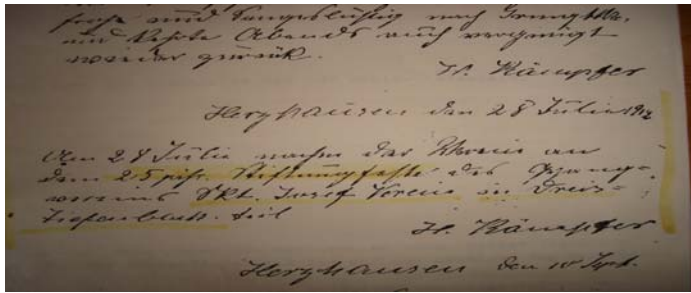 frohe und Sangeslustig nach
und kehrte Abends auch vergnügt
wieder zurück.
H. Kämpfer
Herzhausen den 28 Julie 1912
Am 28 Julie nahm der Verein an
dem 25 jähr. Stiftungsfeste des Gesang=
vereins Skt. Josef Verein in Dreis=
Tiefenbach. teil
H. Kämpfer
Herzhausen den Sept.